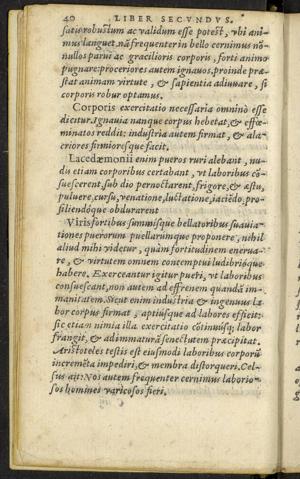 40 LIBER SECVNDVS.
satis robustum ac validum esse potest, vbi ani-
mus languet, nã frequenter in bello cernimus nõ-
nullos parui ac gracilioris corporis, forti animo
pugnare: proceriores autem ignauos, proinde præ-
stat animam virtute, & sapientia adiuuare, si
corporis robur optamus.
Corporis exercitatio necessaria omninò esse
dicitur. Ignauia nanque corpus hebetat, & effœ-
minatos reddit: industria autem firmat, & ala-
criores firmioresque facit.
Lacedæmonii enim pueros ruri alebant, nu-
dis etiam corporibus certabant, vt laboribus cõ-
suescerent, sub dio pernoctarent, frigore, & æstu,
puluere, cursu, venatione, luctatione, iaciẽdo, pro-
siliendóque obdurarent
Viris fortibus summísque bellatoribus suauia-
tiones puerorum puellarumque proponere, nihil
aliud mihi videtur, quàm fortitudinem enerua-
re, & virtutem omnem contemptui ludibrióque
habere. Exerceantur igitur pueri, vt laboribus
consuescant, non autem ad effrenem quandã im-
manitatem. Sicut enim industria & ingenuus la-
bor corpus firmat, aptiúsque ad labores efficit:
sic etiam nimia illa exercitatio cõtinuúsq; labor
frangit, & ad immaturã senectutem præcipitat.
Aristoteles testis est eiusmodi laboribus corporũ
incremẽta impediri, & membra distorqueri. Cel-
sus ait: Nos autem frequenter cernimus laborio-
sos homines varicosos fieri.